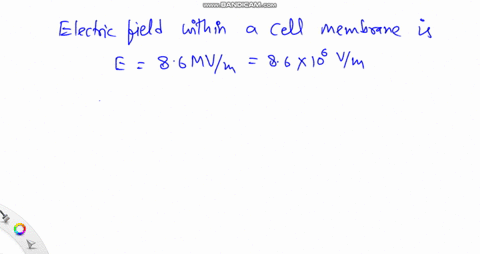 WWW.BANDICAM.COM
Electric field within a cell membrane is
E = 8.6 MV/m = 8.6 × 10⁶ V/m